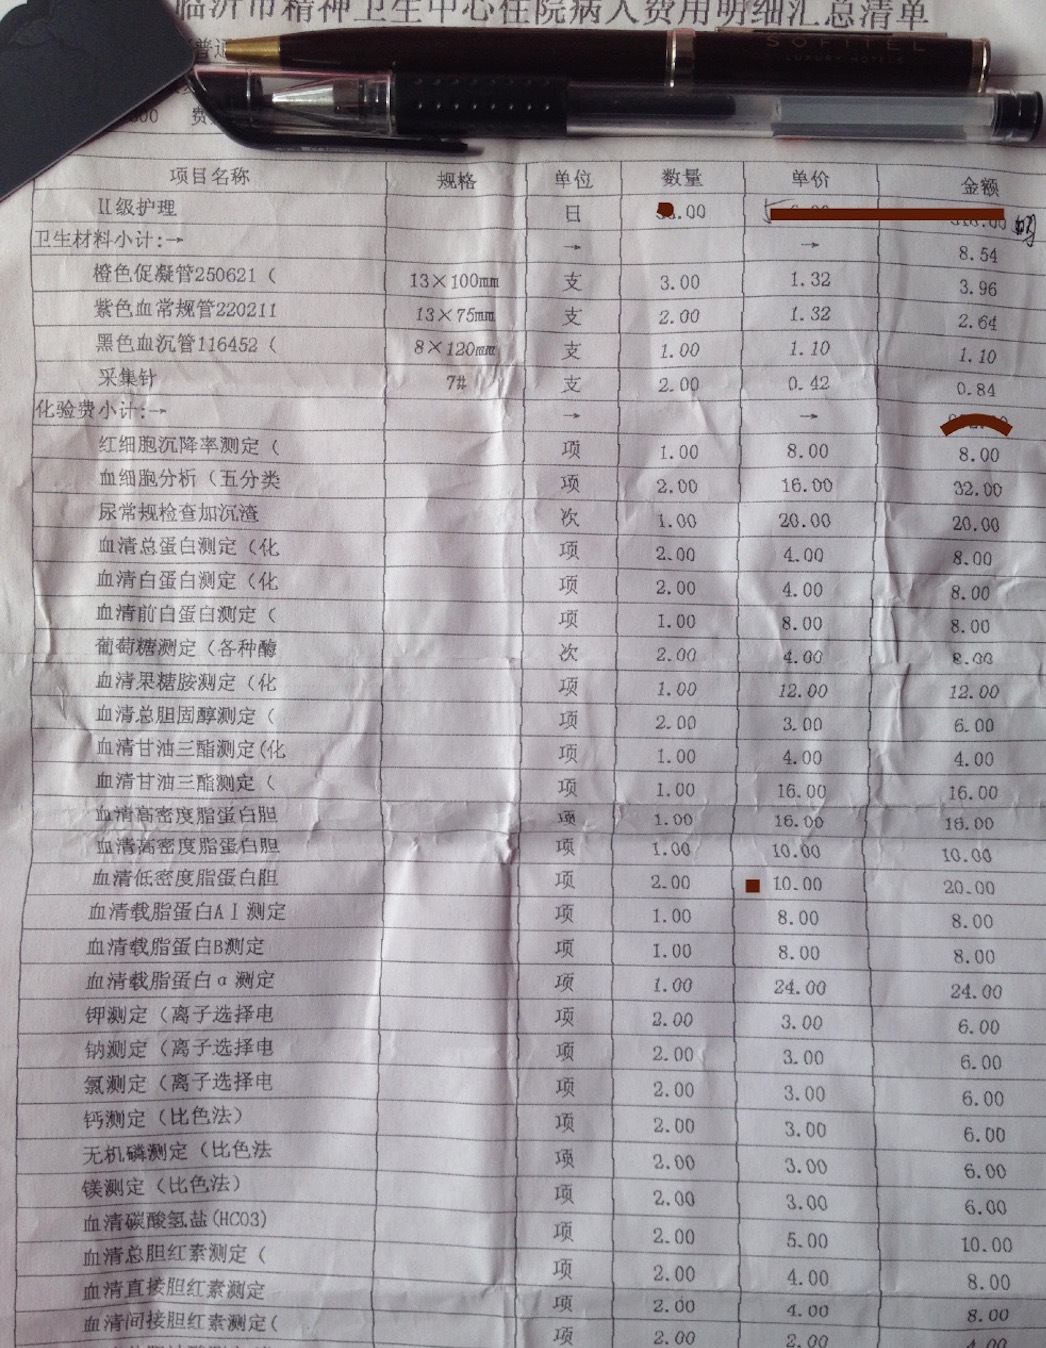 临沂市精神卫生中心住院病人费用明细汇总清单
普通
SOFITEL
LUXURY HOTELS
费
项目名称 规格 单位 数量 单价 金额
Ⅱ级护理 日
卫生材料小计:→ → → 8.54
橙色促凝管250621( 13×100mm 支 3.00 1.32 3.96
紫色血常规管220211 13×75mm 支 2.00 1.32 2.64
黑色血沉管116452( 8×120mm 支 1.00 1.10 1.10
采集针 7# 支 2.00 0.42 0.84
化验费小计:→ → →
红细胞沉降率测定( 项 1.00 8.00 8.00
血细胞分析(五分类 项 2.00 16.00 32.00
尿常规检查加沉渣 次 1.00 20.00 20.00
血清总蛋白测定(化 项 2.00 4.00 8.00
血清白蛋白测定(化 项 2.00 4.00 8.00
血清前白蛋白测定( 项 1.00 8.00 8.00
葡萄糖测定(各种酶 次 2.00 4.00 8.00
血清果糖胺测定(化 项 1.00 12.00 12.00
血清总胆固醇测定( 项 2.00 3.00 6.00
血清甘油三酯测定(化 项 1.00 4.00 4.00
血清甘油三酯测定( 项 1.00 16.00 16.00
血清高密度脂蛋白胆 项 1.00 16.00 16.00
血清高密度脂蛋白胆 项 1.00 10.00 10.00
血清低密度脂蛋白胆 项 2.00 10.00 20.00
血清载脂蛋白AⅠ测定 项 1.00 8.00 8.00
血清载脂蛋白B测定 项 1.00 8.00 8.00
血清载脂蛋白α测定 项 1.00 24.00 24.00
钾测定(离子选择电 项 2.00 3.00 6.00
钠测定(离子选择电 项 2.00 3.00 6.00
氯测定(离子选择电 项 2.00 3.00 6.00
钙测定(比色法) 项 2.00 3.00 6.00
无机磷测定(比色法 项 2.00 3.00 6.00
镁测定(比色法) 项 2.00 3.00 6.00
血清碳酸氢盐(HCO3) 项 2.00 5.00 10.00
血清总胆红素测定( 项 2.00 4.00 8.00
血清直接胆红素测定 项 2.00 4.00 8.00
血清间接胆红素测定( 项 2.00 2.00 4.00